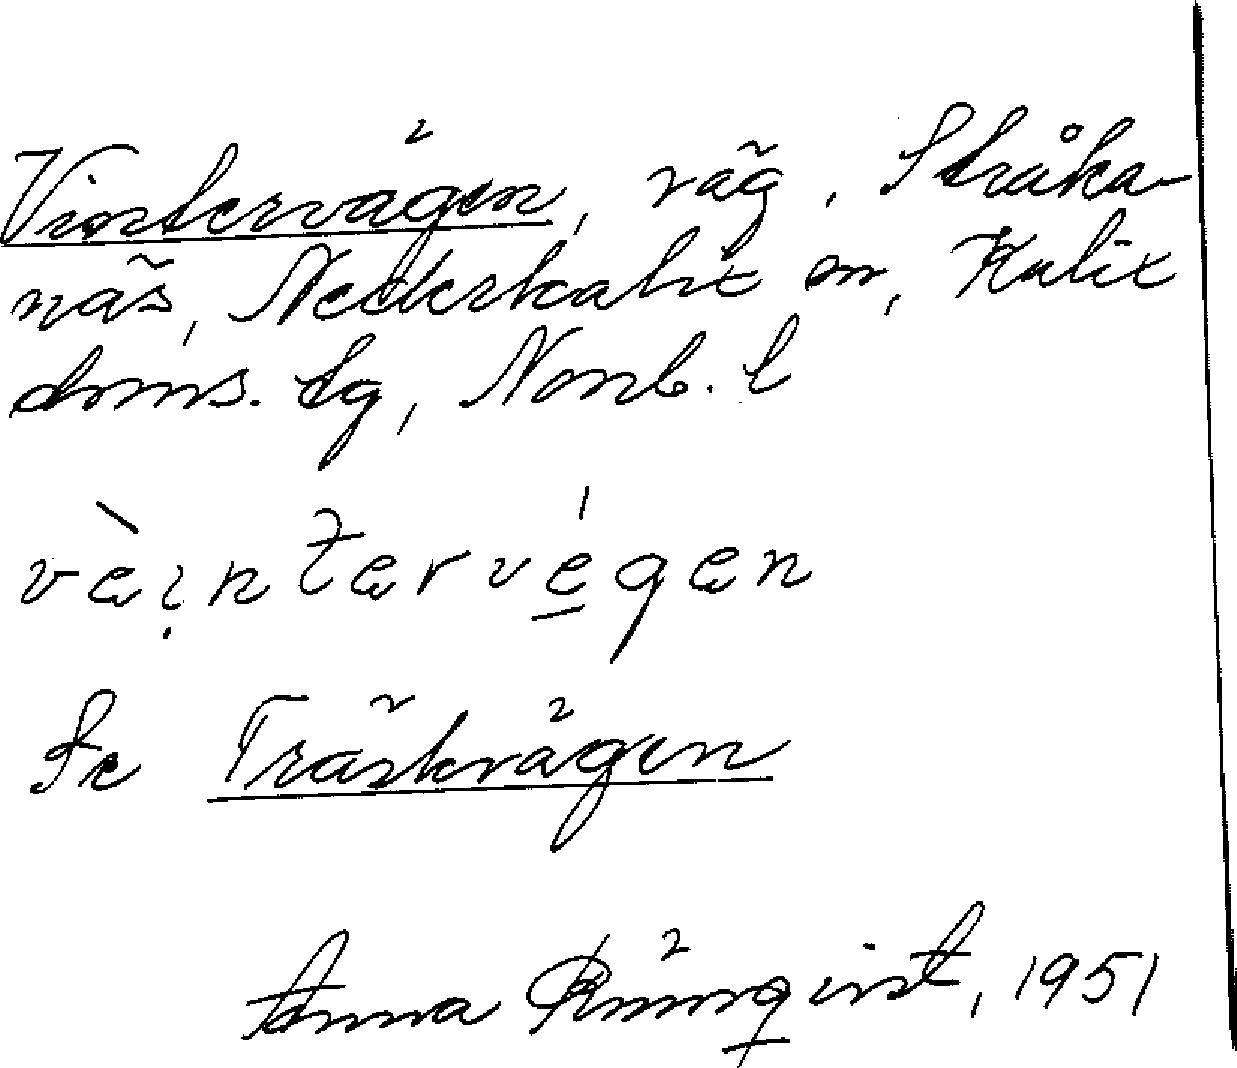 Vintervägen, väg, Stråka-
näs, Nederkalix sn, Kalix
doms. lg, Nonb. l
vèi̩ntærvégæn
Se Träskvägen
Anna Rönnqvist, 1951